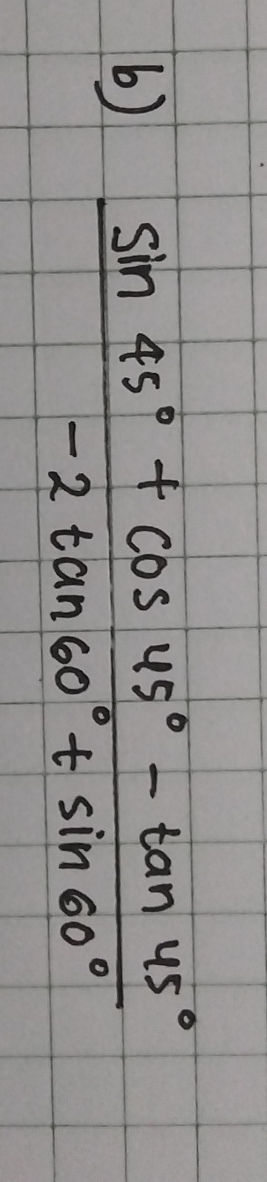 b) sin 45° + cos 45° - tan 45°
-2 tan 60° + sin 60°